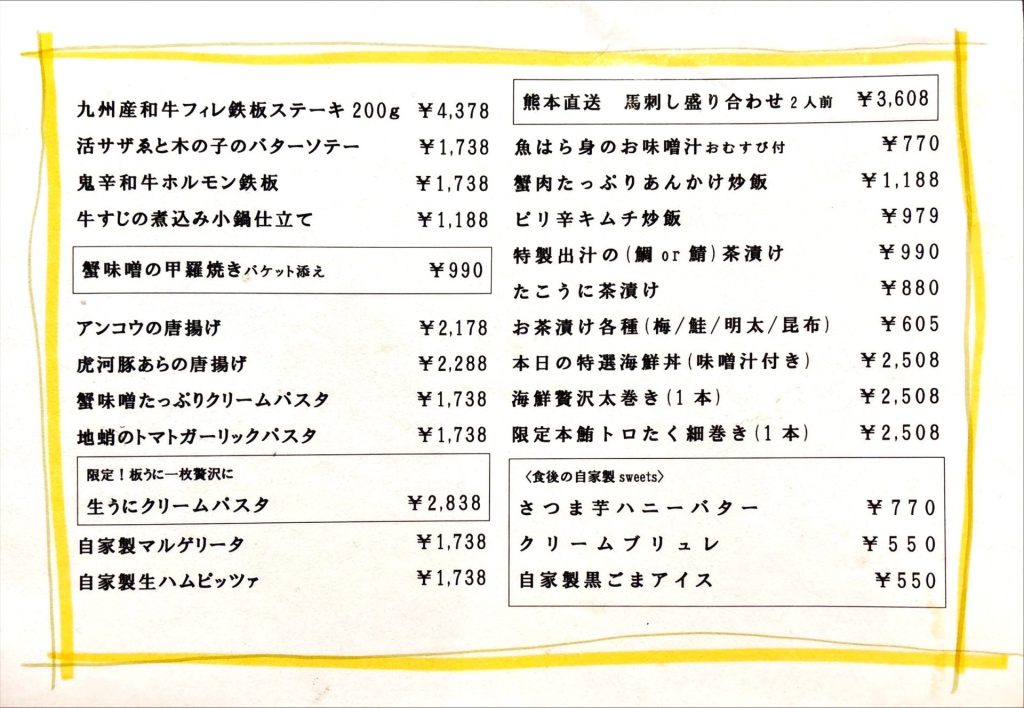 九州産和牛フィレ鉄板ステーキ200g ¥4,378
活サザゑと木の子のバターソテー ¥1,738
鬼辛和牛ホルモン鉄板 ¥1,738
牛すじの煮込み小鍋仕立て ¥1,188
蟹味噌の甲羅焼きバケット添え ¥990
アンコウの唐揚げ ¥2,178
虎河豚あらの唐揚げ ¥2,288
蟹味噌たっぷりクリームパスタ ¥1,738
地蛸のトマトガーリックパスタ ¥1,738
限定！板うに一枚贅沢に
生うにクリームパスタ ¥2,838
自家製マルゲリータ ¥1,738
自家製生ハムピッツァ ¥1,738
熊本直送 馬刺し盛り合わせ2人前 ¥3,608
魚はら身のお味噌汁おむすび付 ¥770
蟹肉たっぷりあんかけ炒飯 ¥1,188
ピリ辛キムチ炒飯 ¥979
特製出汁の(鯛or鯖)茶漬け ¥990
たこうに茶漬け ¥880
お茶漬け各種(梅/鮭/明太/昆布) ¥605
本日の特選海鮮丼(味噌汁付き) ¥2,508
海鮮贅沢太巻き(1本) ¥2,508
限定本鮪トロたく細巻き(1本) ¥2,508
〈食後の自家製sweets〉
さつま芋ハニーバター ¥770
クリームブリュレ ¥550
自家製黒ごまアイス ¥550